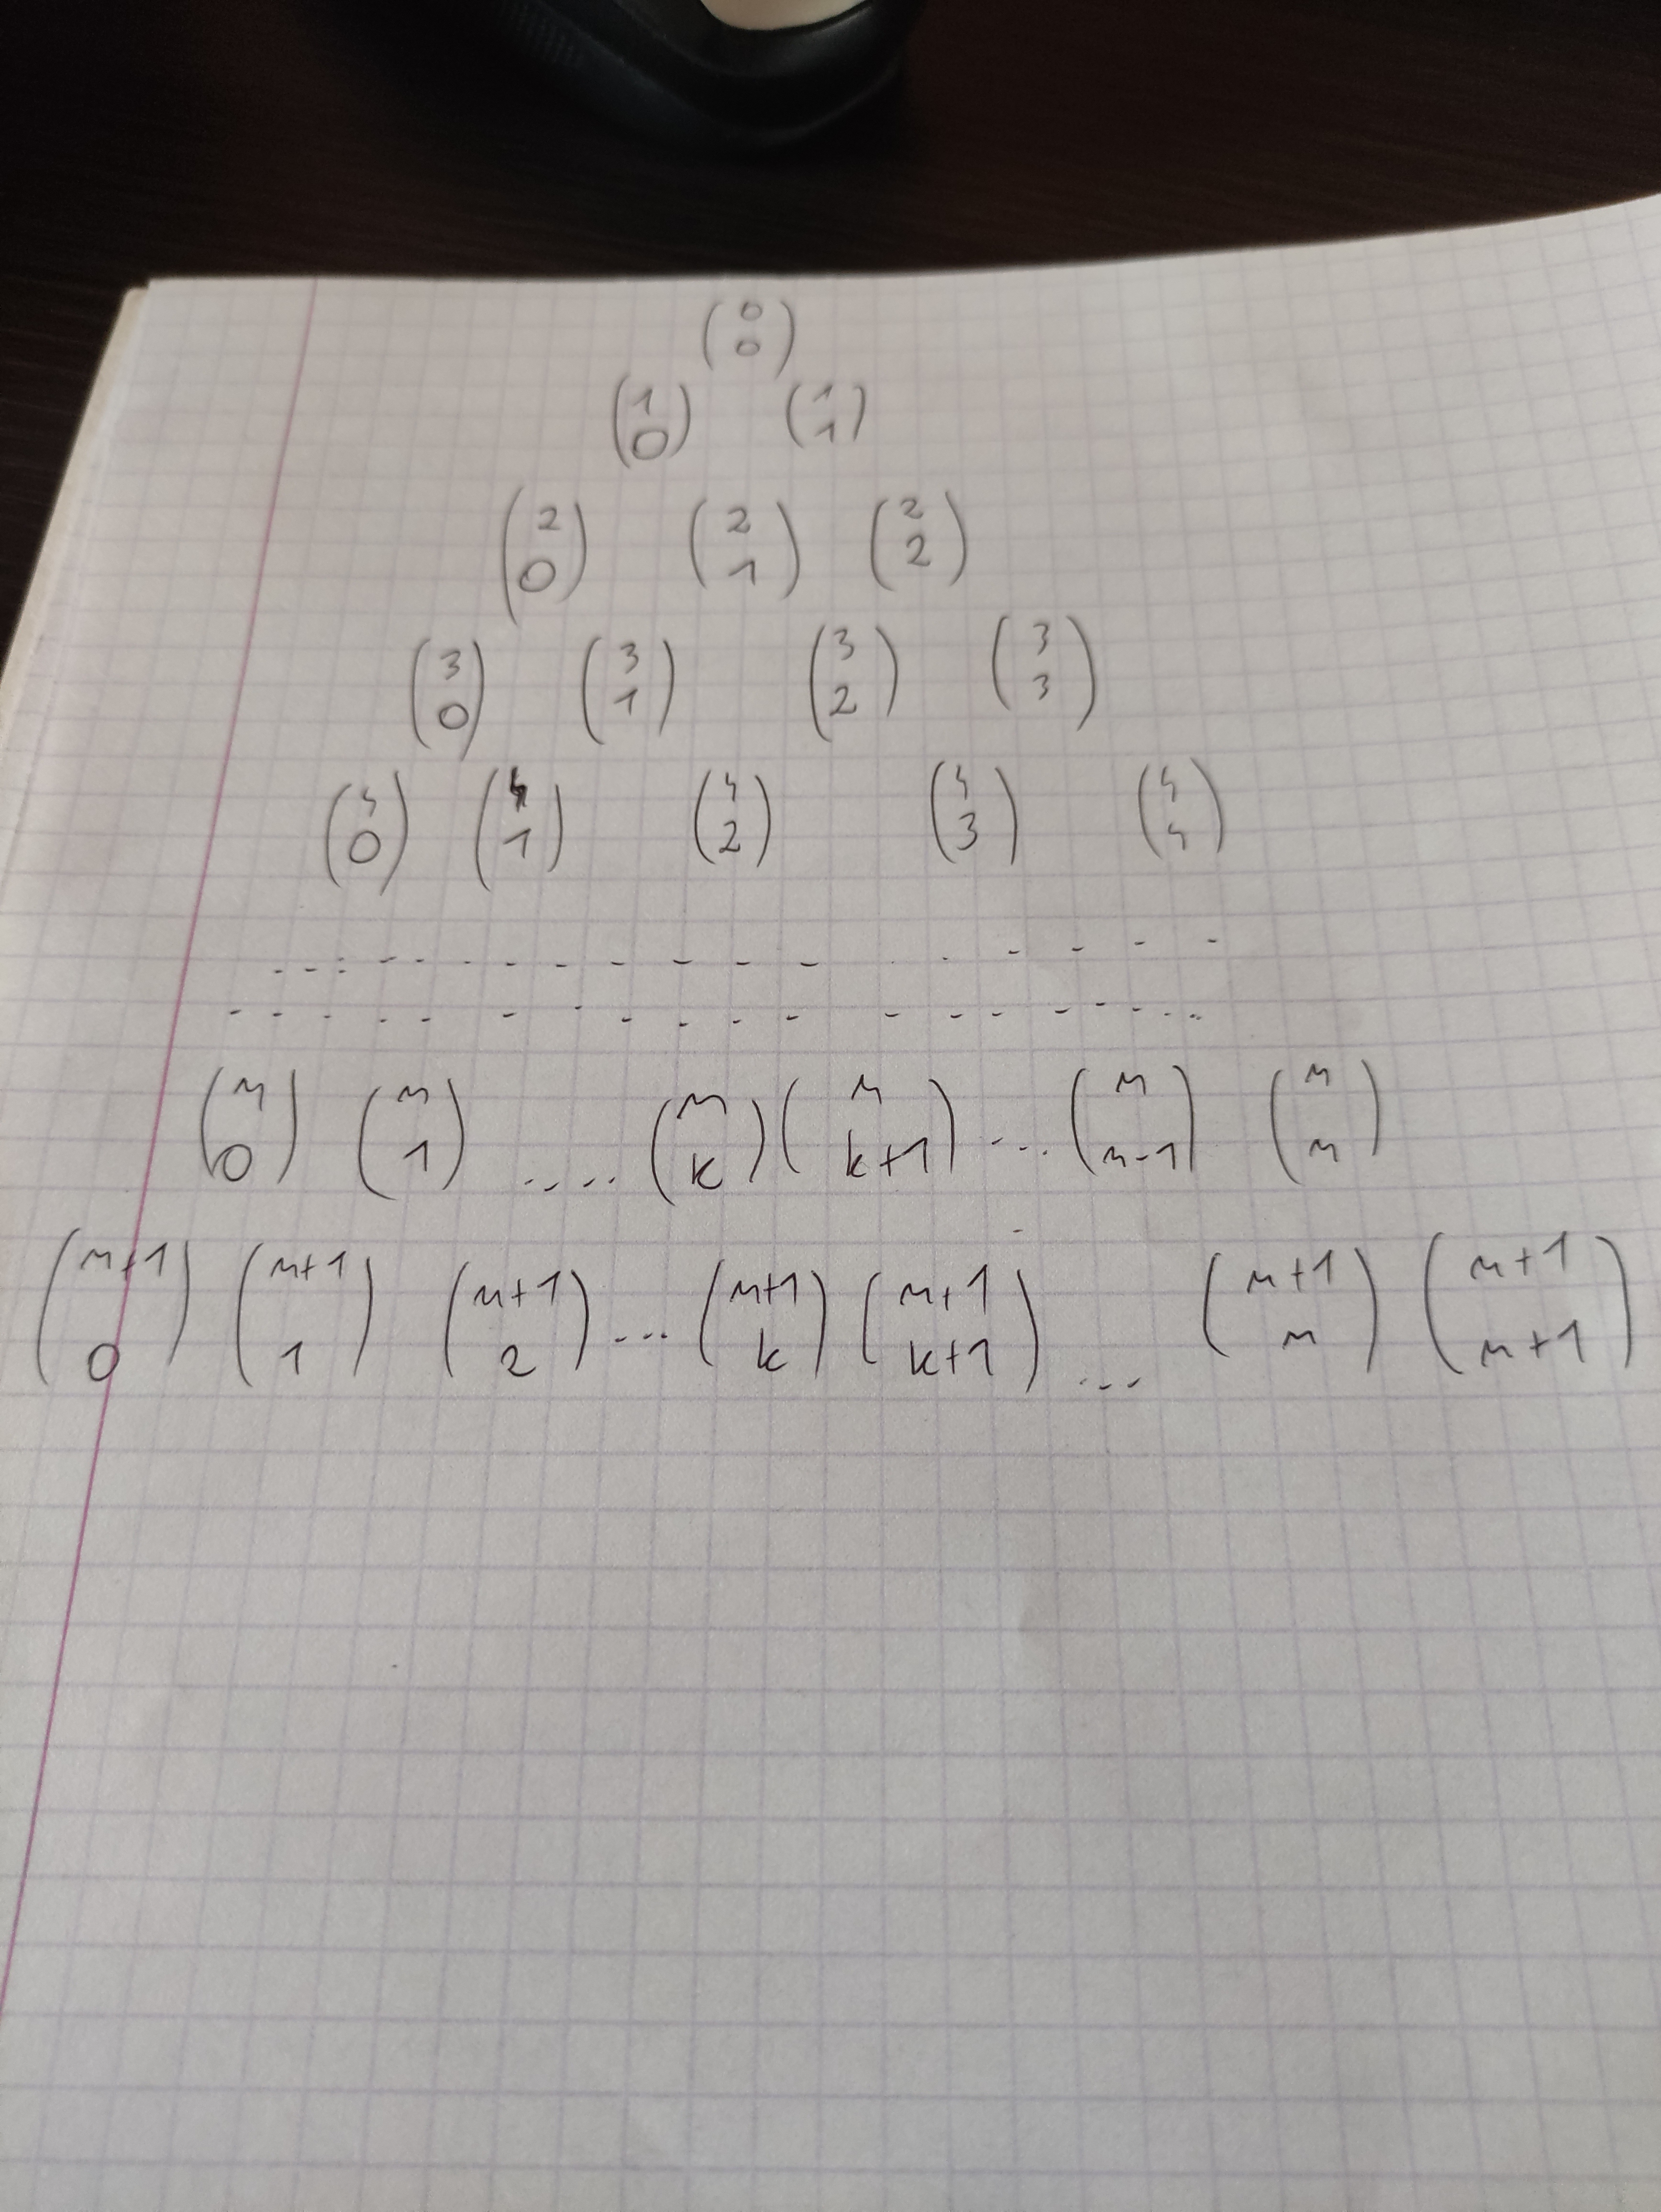 (0 0)
(1 0) (1 1)
(2 0) (2 1) (2 2)
(3 0) (3 1) (3 2) (3 3)
(4 0) (4 1) (4 2) (4 3) (4 4)
(n 0) (n 1) .... (n k) (n k+1) ... (n n-1) (n n)
(n+1 0) (n+1 1) (n+1 2) ... (n+1 k) (n+1 k+1) ... (n+1 n) (n+1 n+1)